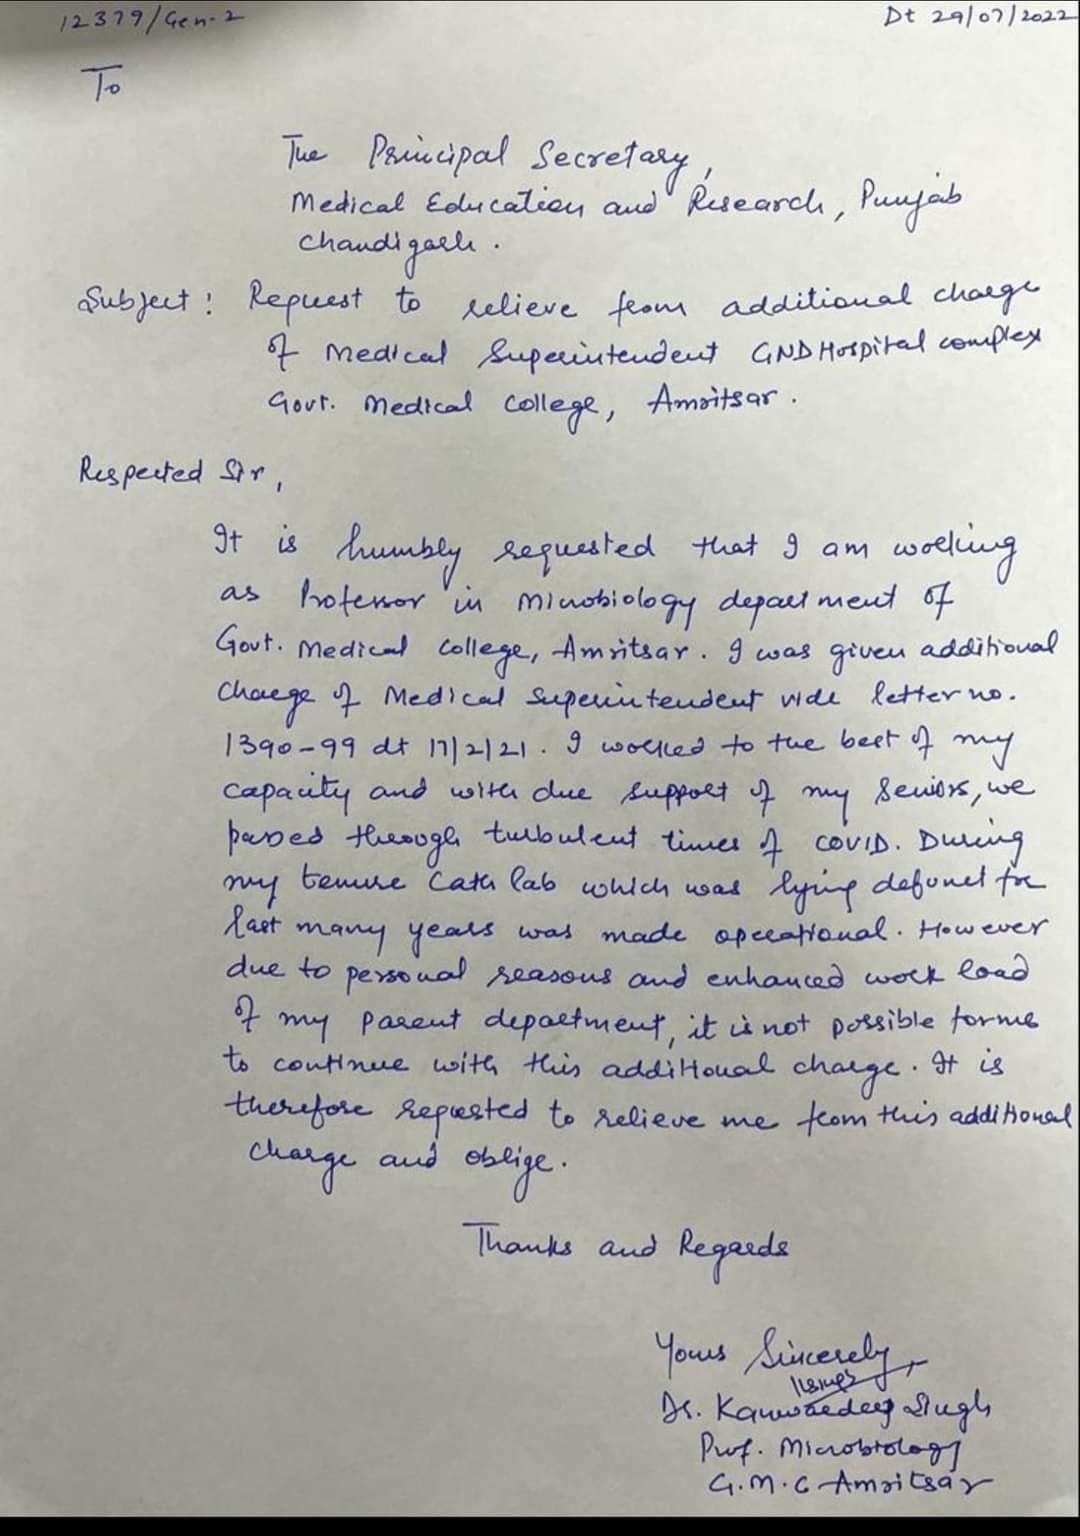 12379/Gen-2
Dt 29/07/2022
To
The Principal Secretary,
Medical Education and Research, Punjab
Chandigarh.
Subject: Request to relieve from additional charge
of Medical Superintendent GND Hospital complex
Govt. Medical College, Amritsar.
Respected Sir,
It is humbly requested that I am working
as Professor in Microbiology department of
Govt. Medical College, Amritsar. I was given additional
charge of Medical Superintendent vide letter no.
1390-99 dt 17/2/21. I worked to the best of my
capacity and with due support of my Seniors, we
passed through turbulent times of COVID. During
my tenure Cath lab which was lying defunct for
last many years was made operational. However
due to personal reasons and enhanced work load
of my parent department, it is not possible for me
to continue with this additional charge. It is
therefore requested to relieve me from this additional
charge and oblige.
Thanks and Regards
Yours Sincerely,
Dr. Kanwardeep Singh
Prof. Microbiology
G.M.C Amritsar